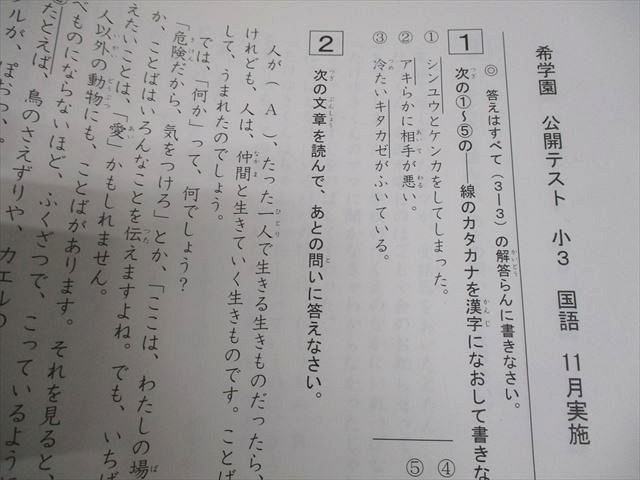 希学園 公開テスト 小3 国語 11月実施
◎ 答えはすべて(3―3)の解答らんに書きなさい。
1 次の①~⑤の――線のカタカナを漢字になおして書きな
① シンユウとケンカをしてしまった。
② アキらかに相手が悪い。
③ 冷たいキタカゼがふいている。
④
⑤
2 次の文章を読んで、あとの問いに答えなさい。
人が( A )、たった一人で生きる生きものだったら、
けれども、人は、仲間と生きていく生きものです。ことば
して、うまれたのでしょう。
では、「何か」って、何でしょう?
「危険だから、気をつけろ」とか、「ここは、わたしの場
か、ことばはいろんなことを伝えますよね。でも、いちば
えたいことは、「愛」かもしれません。
人以外の動物にも、ことばがあります。それを見ると、
べものにならないほど、ふくざつで、こっているように
たとえば、鳥のさえずりや、カエルの
ルが、ぽおっ、